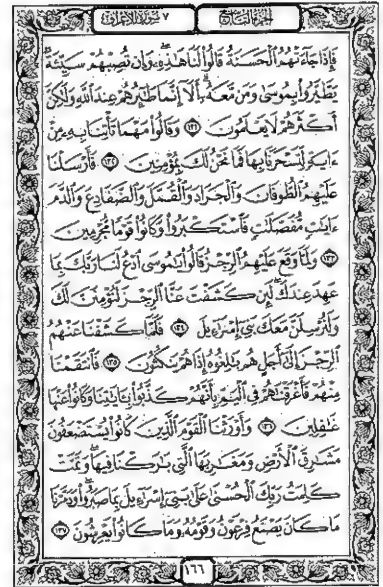 الجزء التاسع
٧ سورة الأعراف
فَإِذَا جَاءَتْهُمُ الْحَسَنَةُ قَالُوا لَنَا هَٰذِهِ وَإِن تُصِبْهُمْ سَيِّئَةٌ
يَطَّيَّرُوا بِمُوسَىٰ وَمَن مَّعَهُ أَلَا إِنَّمَا طَائِرُهُمْ عِندَ اللَّهِ وَلَٰكِنَّ
أَكْثَرَهُمْ لَا يَعْلَمُونَ ١٣١ وَقَالُوا مَهْمَا تَأْتِنَا بِهِ مِنْ
ءَايَةٍ لِّتَسْحَرَنَا بِهَا فَمَا نَحْنُ لَكَ بِمُؤْمِنِينَ ١٣٢ فَأَرْسَلْنَا
عَلَيْهِمُ الطُّوفَانَ وَالْجَرَادَ وَالْقُمَّلَ وَالضَّفَادِعَ وَالدَّمَ
ءَايَٰتٍ مُّفَصَّلَٰتٍ فَاسْتَكْبَرُوا وَكَانُوا قَوْمًا مُّجْرِمِينَ
١٣٣ وَلَمَّا وَقَعَ عَلَيْهِمُ الرِّجْزُ قَالُوا يَٰمُوسَى ادْعُ لَنَا رَبَّكَ بِمَا
عَهِدَ عِندَكَ لَئِن كَشَفْتَ عَنَّا الرِّجْزَ لَنُؤْمِنَنَّ لَكَ
وَلَنُرْسِلَنَّ مَعَكَ بَنِي إِسْرَٰءِيلَ ١٣٤ فَلَمَّا كَشَفْنَا عَنْهُمُ
الرِّجْزَ إِلَىٰ أَجَلٍ هُم بَٰلِغُوهُ إِذَا هُمْ يَنكُثُونَ ١٣٥ فَانتَقَمْنَا
مِنْهُمْ فَأَغْرَقْنَٰهُمْ فِي الْيَمِّ بِأَنَّهُمْ كَذَّبُوا بِـَٔايَٰتِنَا وَكَانُوا عَنْهَا
غَٰفِلِينَ ١٣٦ وَأَوْرَثْنَا الْقَوْمَ الَّذِينَ كَانُوا يُسْتَضْعَفُونَ
مَشَٰرِقَ الْأَرْضِ وَمَغَٰرِبَهَا الَّتِي بَٰرَكْنَا فِيهَا وَتَمَّتْ
كَلِمَتُ رَبِّكَ الْحُسْنَىٰ عَلَىٰ بَنِي إِسْرَٰءِيلَ بِمَا صَبَرُوا وَدَمَّرْنَا
مَا كَانَ يَصْنَعُ فِرْعَوْنُ وَقَوْمُهُ وَمَا كَانُوا يَعْرِشُونَ ١٣٧
١٦٦